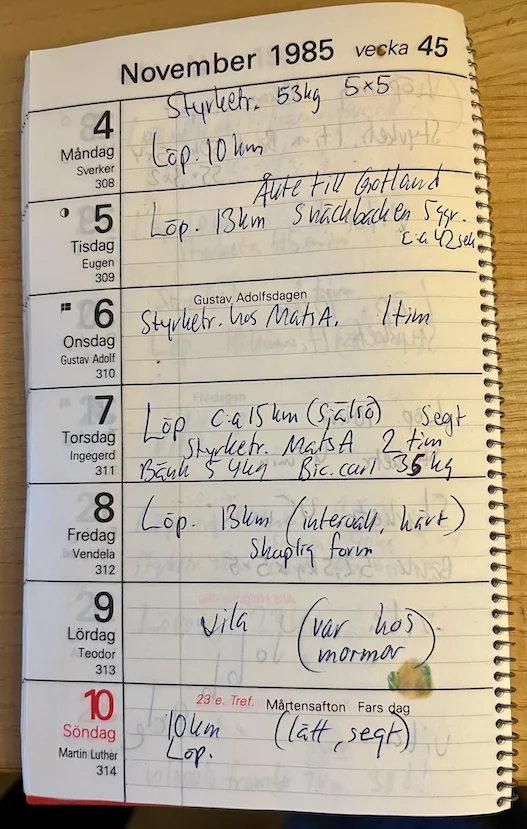 November 1985 vecka 45
4
Måndag
Sverker
308
Styrketr. 53kg 5x5
Löp. 10 km
5
Tisdag
Eugen
309
Åkte till Gotland
Löp. 13km Snäckbacken 5ggr.
c:a 42 sek
6
Onsdag
Gustav Adolf
310
Gustav Adolfsdagen
Styrketr. hos Mats A. 1 tim
7
Torsdag
Ingegerd
311
Löp c:a 15 km (själsö) segt
Styrketr. Mats A 2 tim
Bänk 54kg Bic.curl 35 kg
8
Fredag
Vendela
312
Löp. 13km (intervall, hårt)
skaplig form
9
Lördag
Teodor
313
vila (var hos
mormor)
10
Söndag
Martin Luther
314
23 e. Tref. Mårtensafton Fars dag
10km (lätt, segt)
Löp.